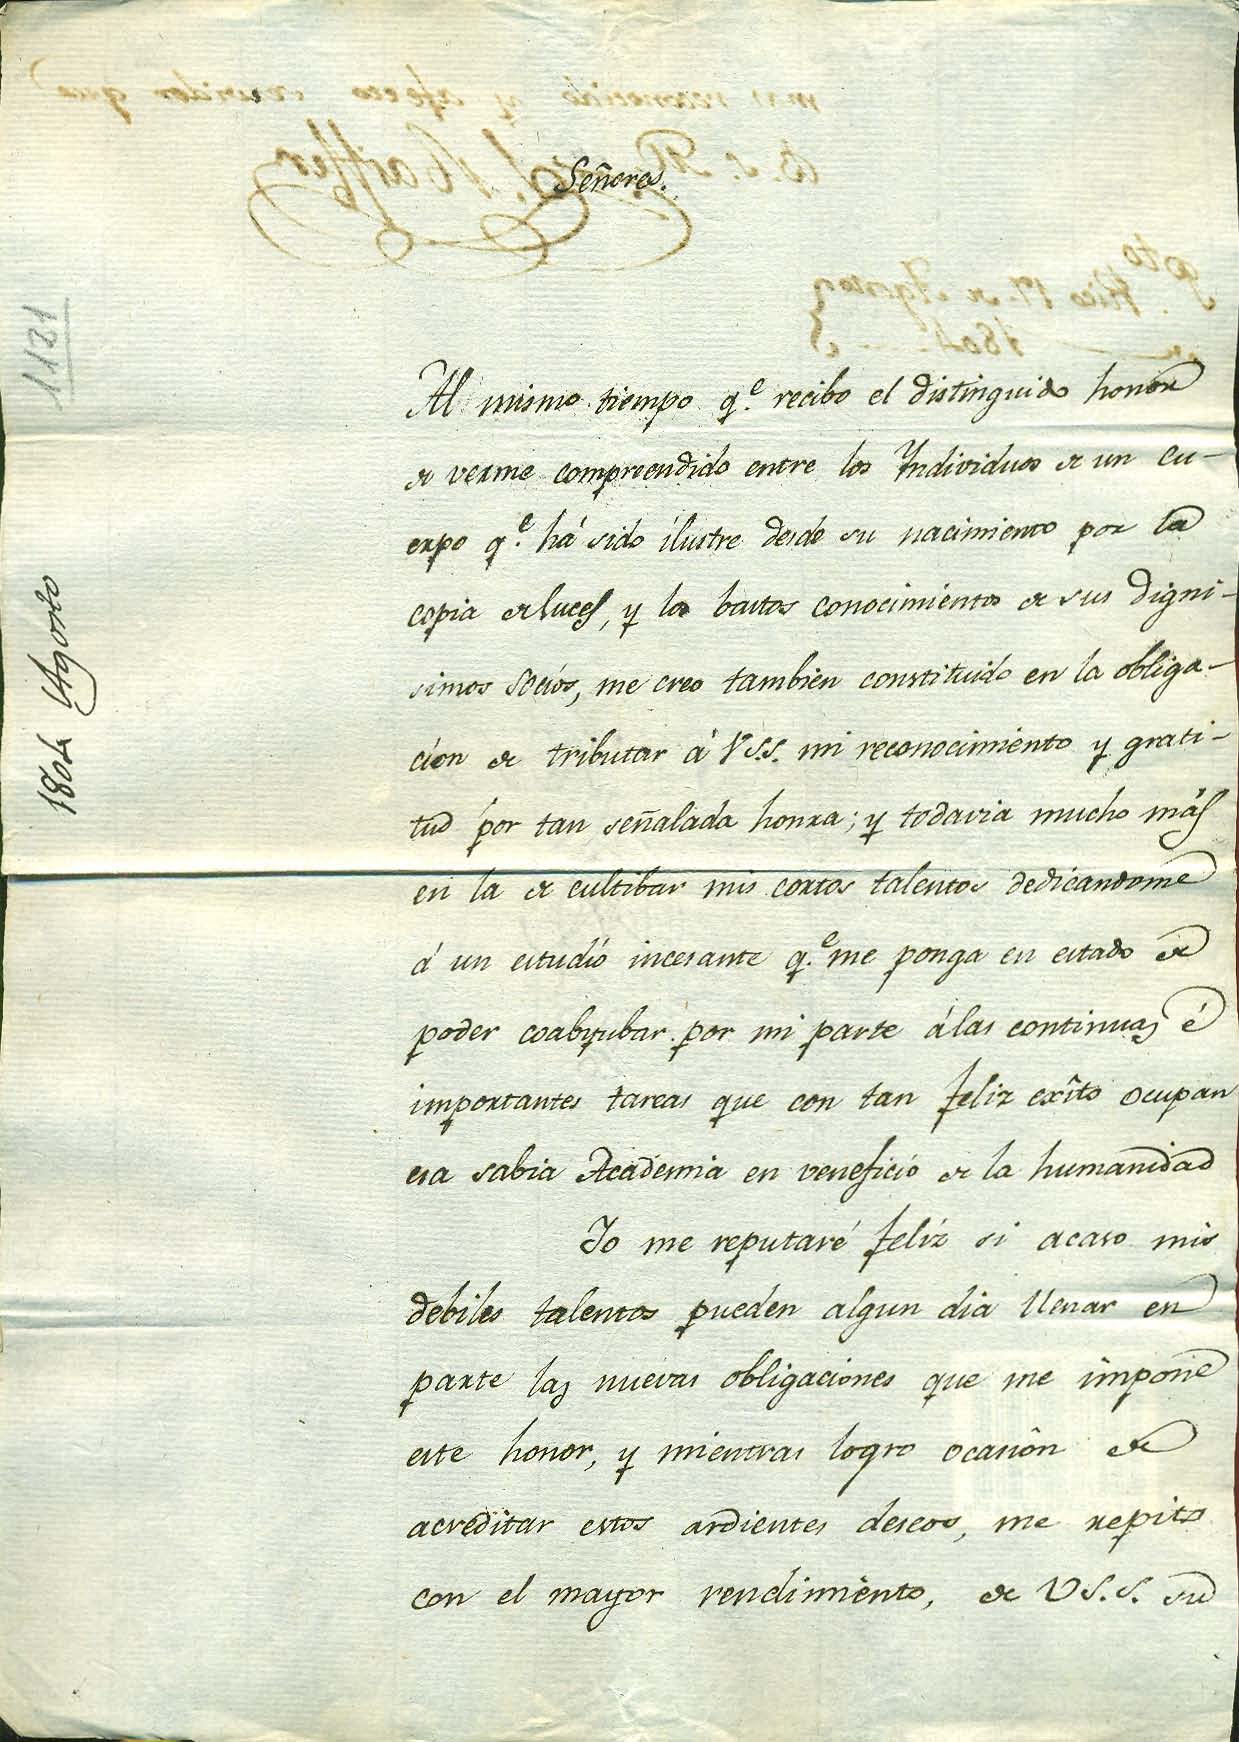 Señores.
Al mismo tiempo q.e recibo el distinguido honor
de verme compreendido entre los Yndividuos de un cu-
erpo q.e há sido ilustre desde su nacimiento por la
copia de luces, y los bastos conocimientos de sus digni-
simos socios, me creo tambien constituido en la obliga-
cion de tributar á V.S.S. mi reconocimiento y grati-
tud por tan señalada honra; y todavia mucho más
en la de cultibar mis cortos talentos dedicandome
á un estudio incesante q.e me ponga en estado de
poder coadyubar por mi parte á las continuas é
importantes tareas que con tan feliz exîto ocupan
esa sabia Academia en veneficio de la humanidad
Yo me reputaré feliz si acaso mis
debiles talentos pueden algun dia llenar en
parte las nuevas obligaciones que me impone
este honor, y mientras logro ocasion de
acreditar estos ardientes deseos, me repito
con el mayor rendimiento, de V.S.S. su
1804 Agosto
1121